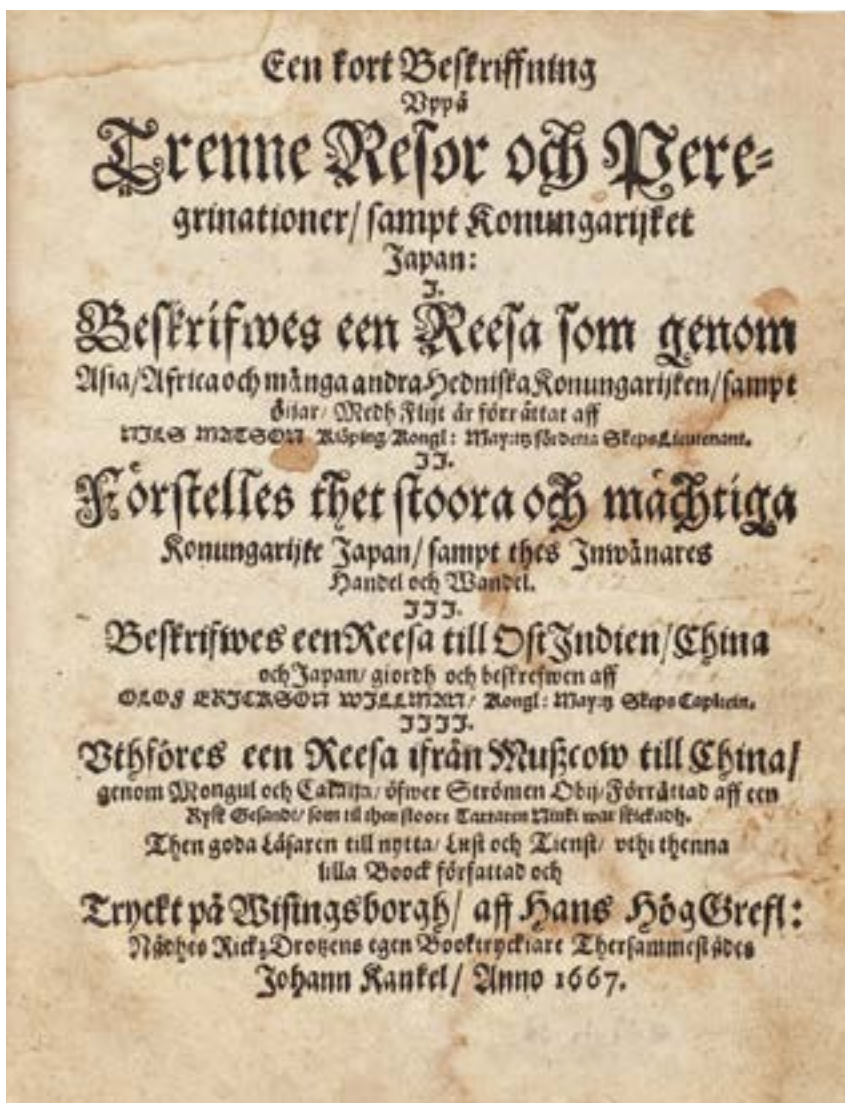 Een kort Beskriffning
Vppå
Trenne Resor och Pere-
grinationer/ sampt Konungarijket
Japan:
I.
Beskrifwes een Reesa som genom
Asia/ Africa och många andra Hedniska Konungarijken/ sampt
öijar/ Medh Flijt är förrättat aff
NILS MATSON Kiöping/ Kongl: May:tz för detta Skeps Lieutenant.
II.
Förstelles thet stoora och mächtiga
Konungarijke Japan/ sampt thes Inwånares
Handel och Wandel.
III.
Beskrifwes een Reesa till Ost Indien/ China
och Japan/ giordh och beskrefwen aff
OLOF ERICKSON WILLMAN/ Kongl: May:tz Skeps Capitein.
IIII.
Vthföres een Reesa ifrån Mußcow till China/
genom Mongul och Cataija/ öfwer Strömen Obij/ Förrättad aff een
Rysk Gesandt/ som til then stoore Tartaren Niuki war skickadh.
Then goda Läsaren till nytta/ Lust och Tienst/ vthi thenna
lilla Boock författad och
Tryckt på Wisingsborgh/ aff Hans Hög Grefl:
Nådhes Rickz Drotzens egen Booktryckiare Thersammestädes
Johann Kankel/ Anno 1667.